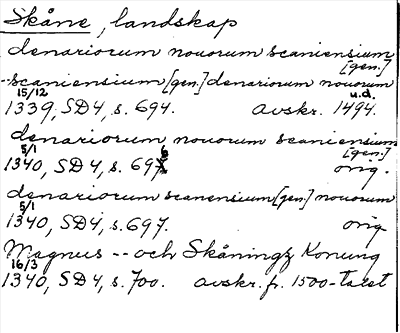 Skåne, landskap
denariorum nouorum scaniensium [gen.]
--scaniensium [gen.] denariorum nouorum
15/12 u.d.
1339, SD4, s. 694. avskr. 1494.
denariorum nouorum scaniensium [gen.]
5/1
1340, SD4, s. 696 orig.
denariorum scanensium [gen.] nouorum
5/1
1340, SD4, s. 697. orig
Magnus -- och Skåningz Konung
16/3
1340, SD4, s. 700. avskr. fr. 1500-talet